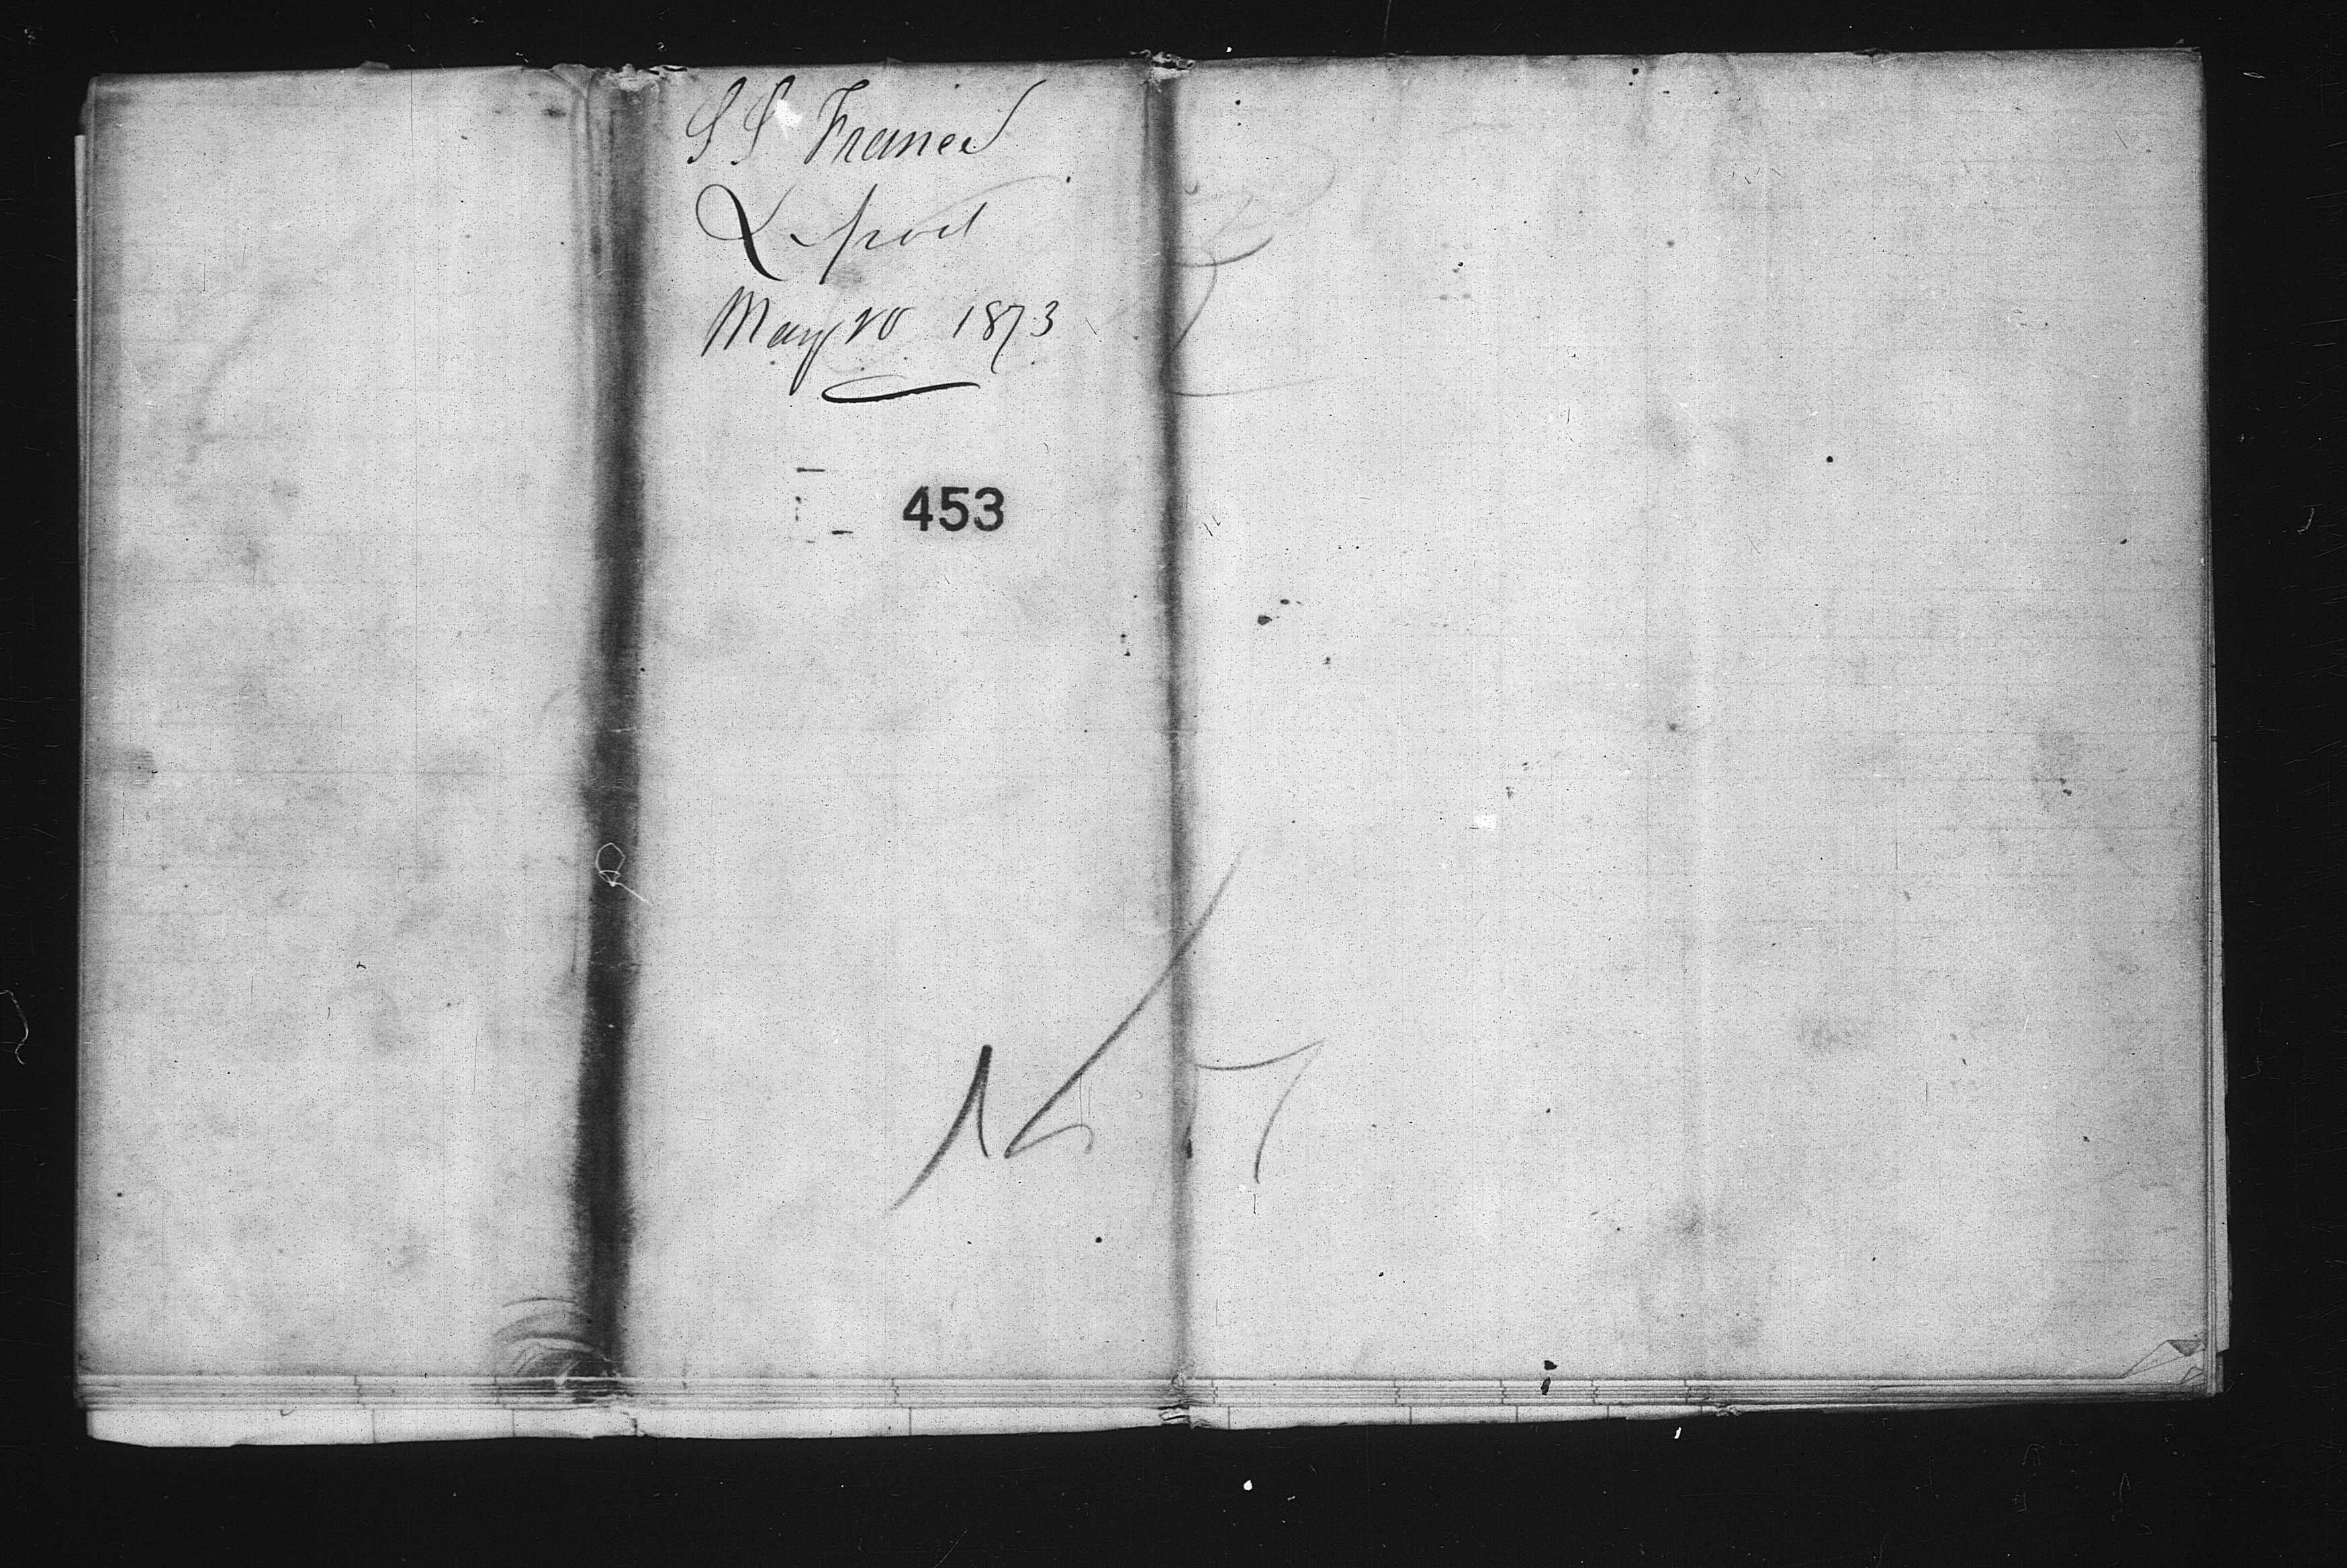 SS France
L.pool
May 20 1873
453